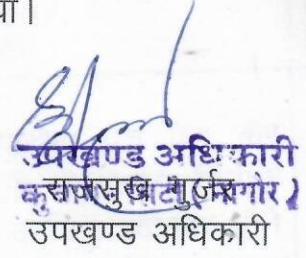 या।
उपखण्ड अधिकारी
कुचामन सिटी (नागौर)
सुख गुर्जर
उपखण्ड अधिकारी